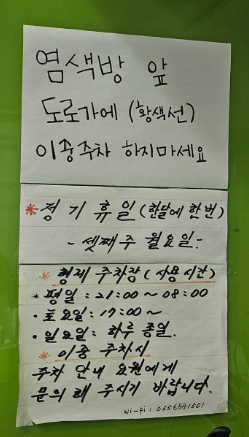 염색방 앞
도로가에 (황색선)
이중주차 하지마세요
※정기휴일(한달에 한번)
- 셋째주 월요일 -
※형제 주차장(사용시간)
• 평일 : 21:00 ~ 08:00
• 토요일 : 17:00 ~
• 일요일 : 하루종일.
※이중 주차시
주차 안내 요원에게
문의 해 주시기 바랍니다.